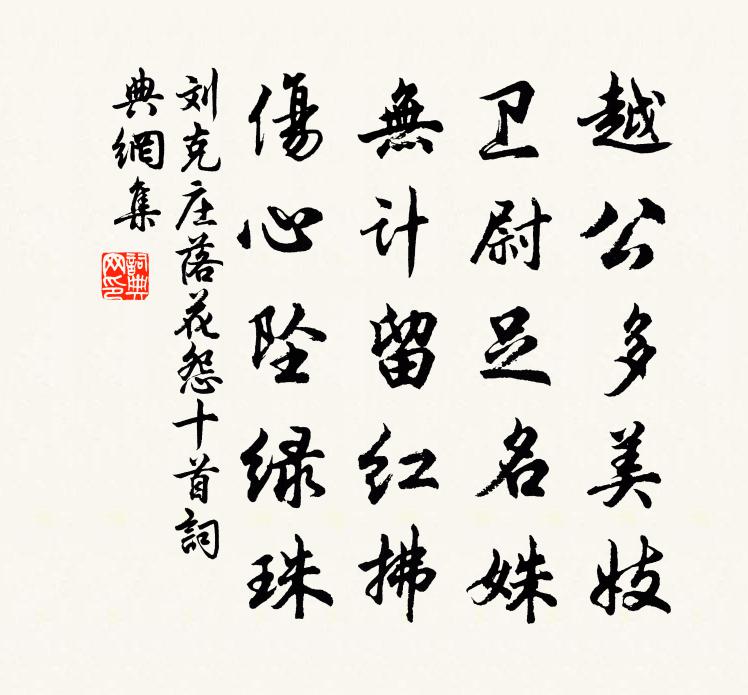 越公多美妓
卫尉足名姝
無计留红拂
傷心坠绿珠
刘克庄落花怨十首詞
典網集
詞典
网印